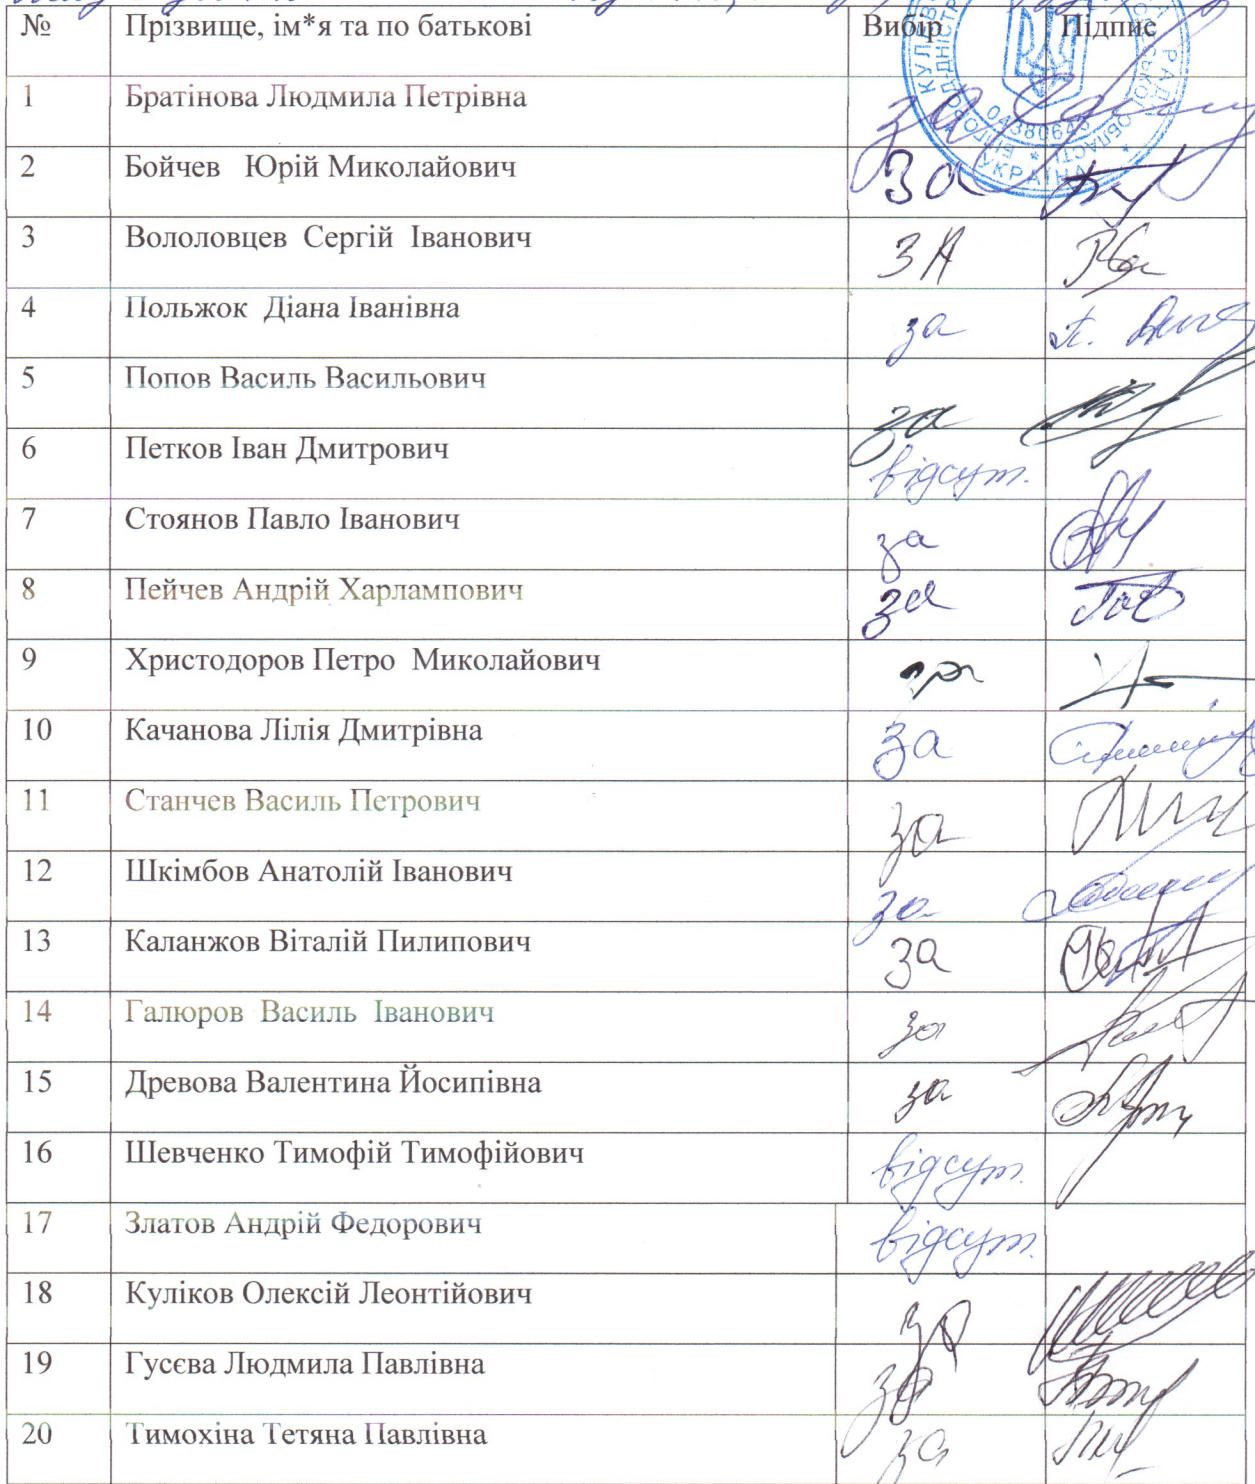 № Прізвище, ім*я та по батькові Вибір Підпис
1 Братінова Людмила Петрівна за
2 Бойчев Юрій Миколайович за
3 Вололовцев Сергій Іванович ЗА
4 Польжок Діана Іванівна за
5 Попов Василь Васильович за
6 Петков Іван Дмитрович відсут.
7 Стоянов Павло Іванович за
8 Пейчев Андрій Харлампович за
9 Христодоров Петро Миколайович за
10 Качанова Лілія Дмитрівна за
11 Станчев Василь Петрович за
12 Шкімбов Анатолій Іванович за
13 Каланжов Віталій Пилипович за
14 Галюров Василь Іванович за
15 Древова Валентина Йосипівна за
16 Шевченко Тимофій Тимофійович відсут.
17 Златов Андрій Федорович відсут.
18 Куліков Олексій Леонтійович за
19 Гусєва Людмила Павлівна за
20 Тимохіна Тетяна Павлівна за
04380643
УКРАЇНА